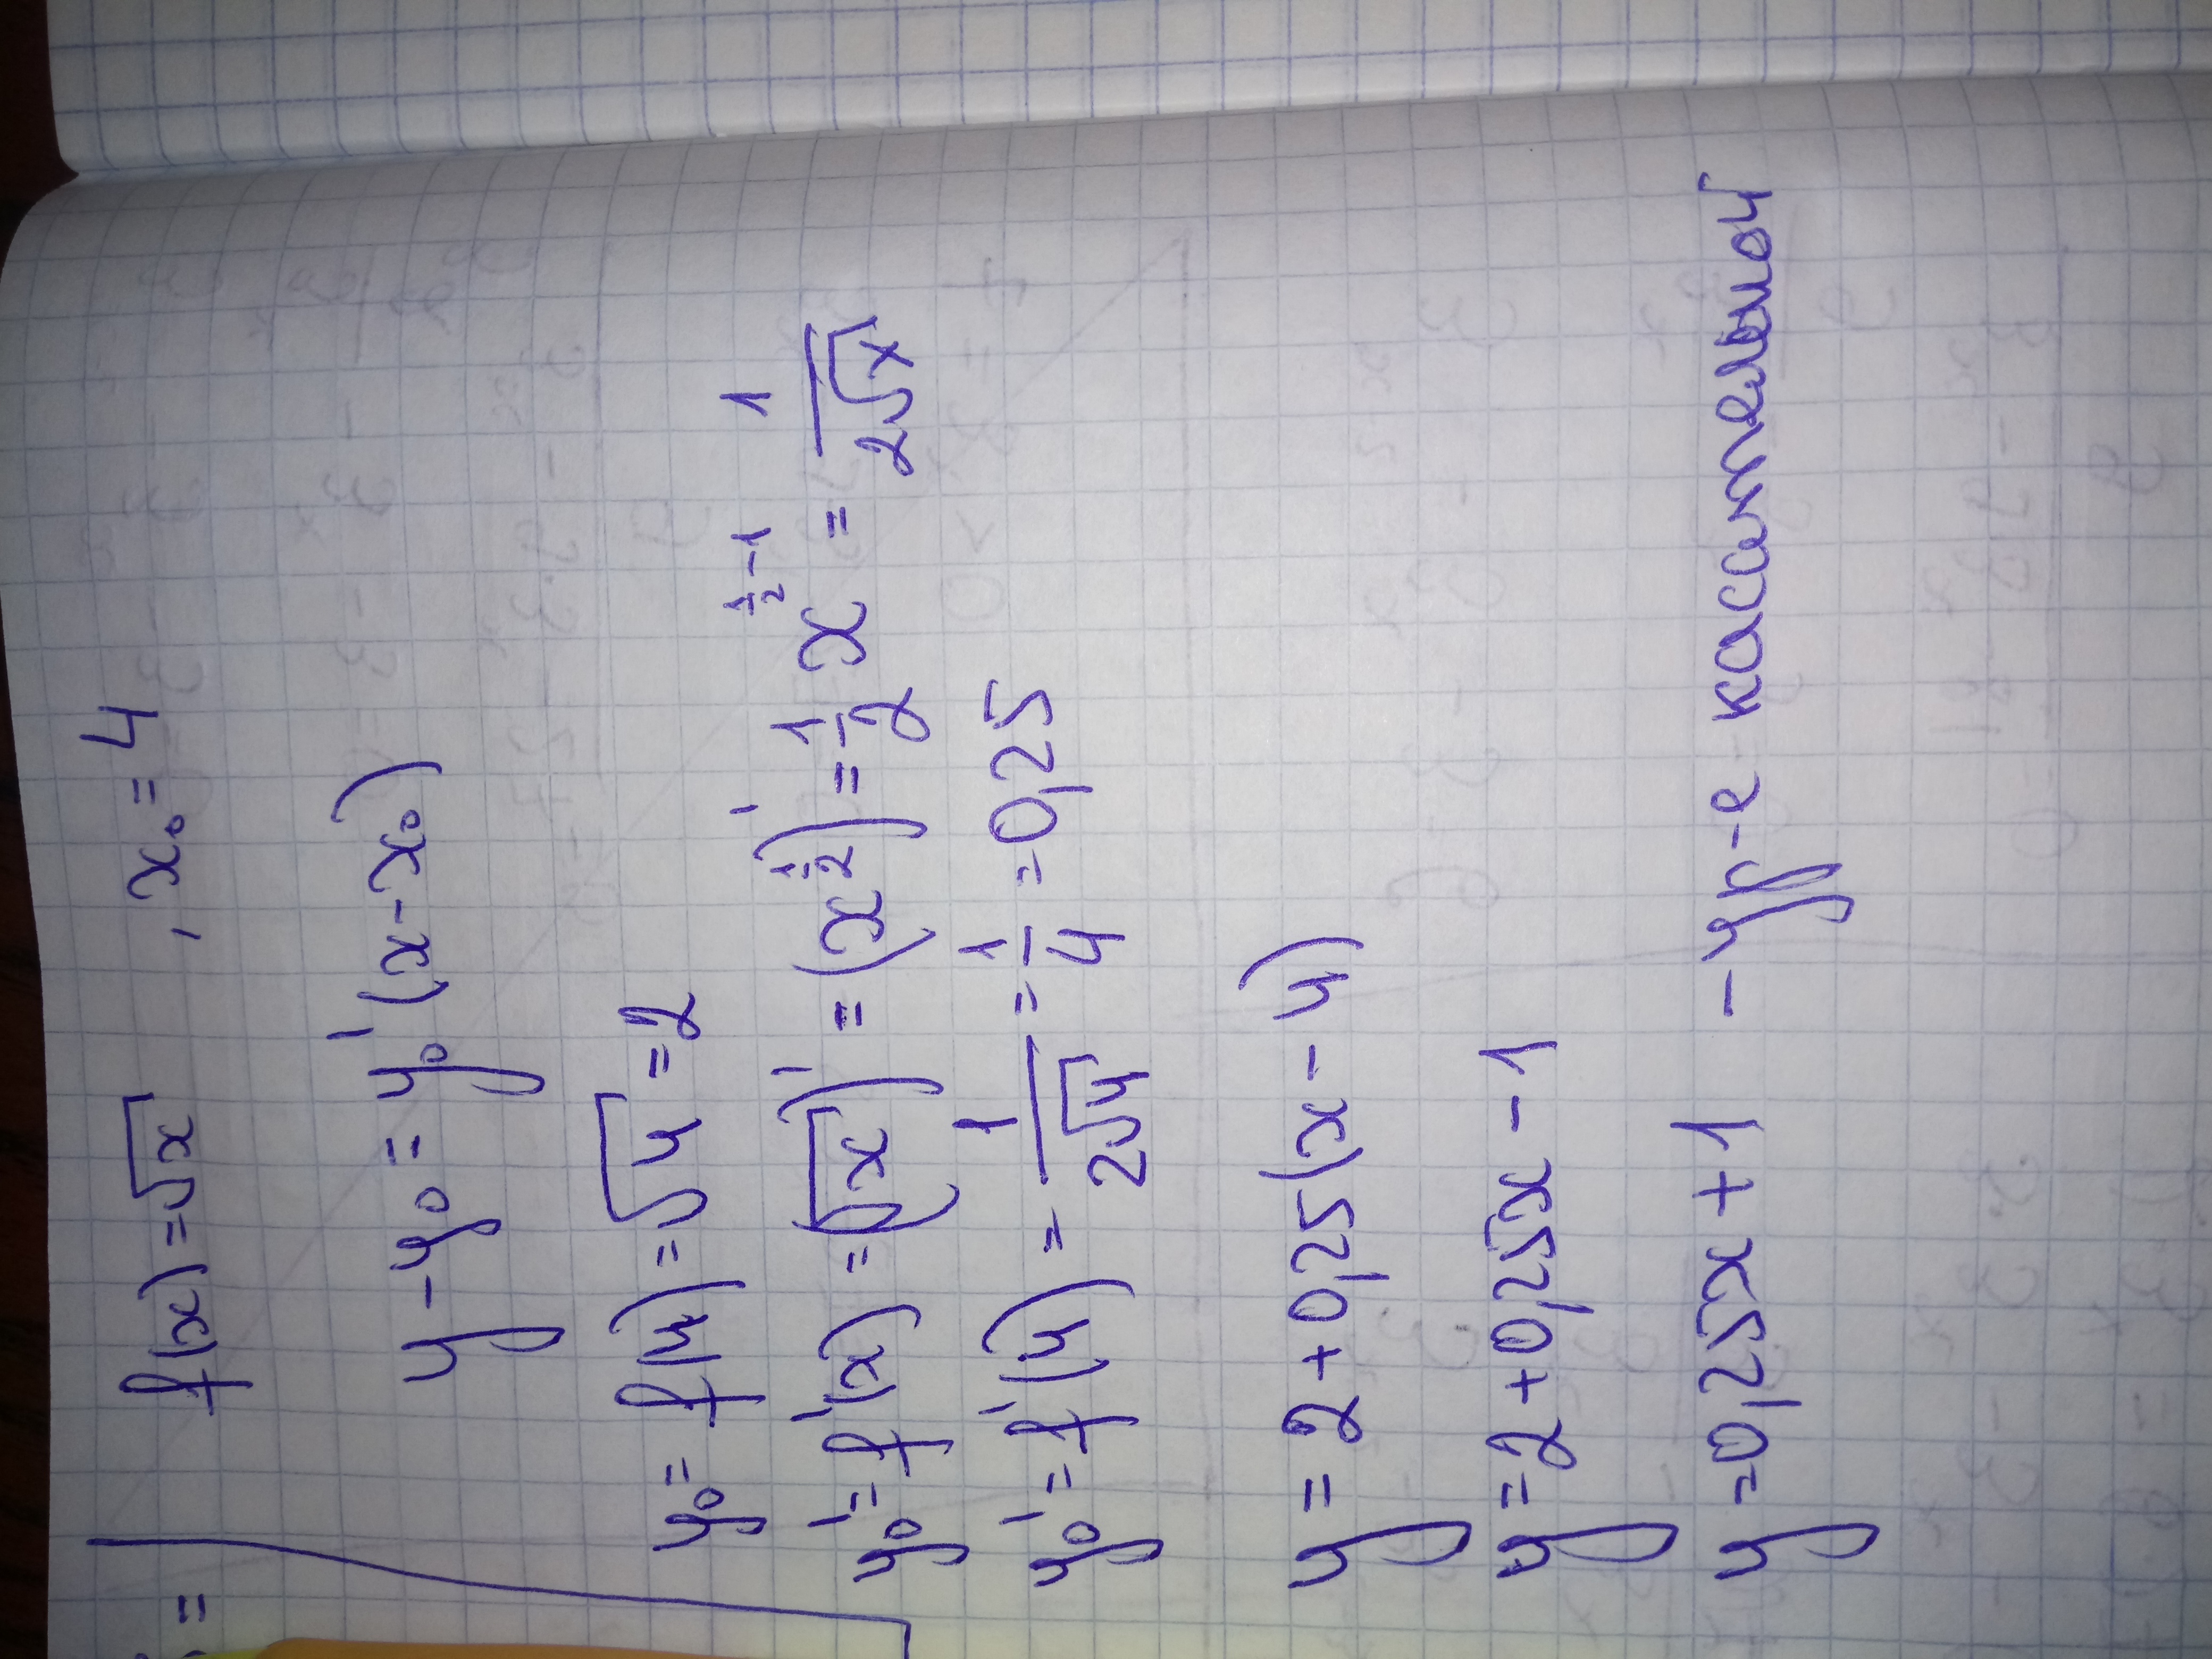 f(x) = √x , x₀ = 4
y - y₀ = y₀'(x - x₀)
y₀ = f(4) = √4 = 2
y₀' = f'(x) = (√x)' = (x^(1/2))' = 1/2 x^(1/2 - 1) = 1/(2√x)
y₀' = f'(4) = 1/(2√4) = 1/4 = 0,25
y = 2 + 0,25(x - 4)
y = 2 + 0,25x - 1
y = 0,25x + 1 - ур-е касательной